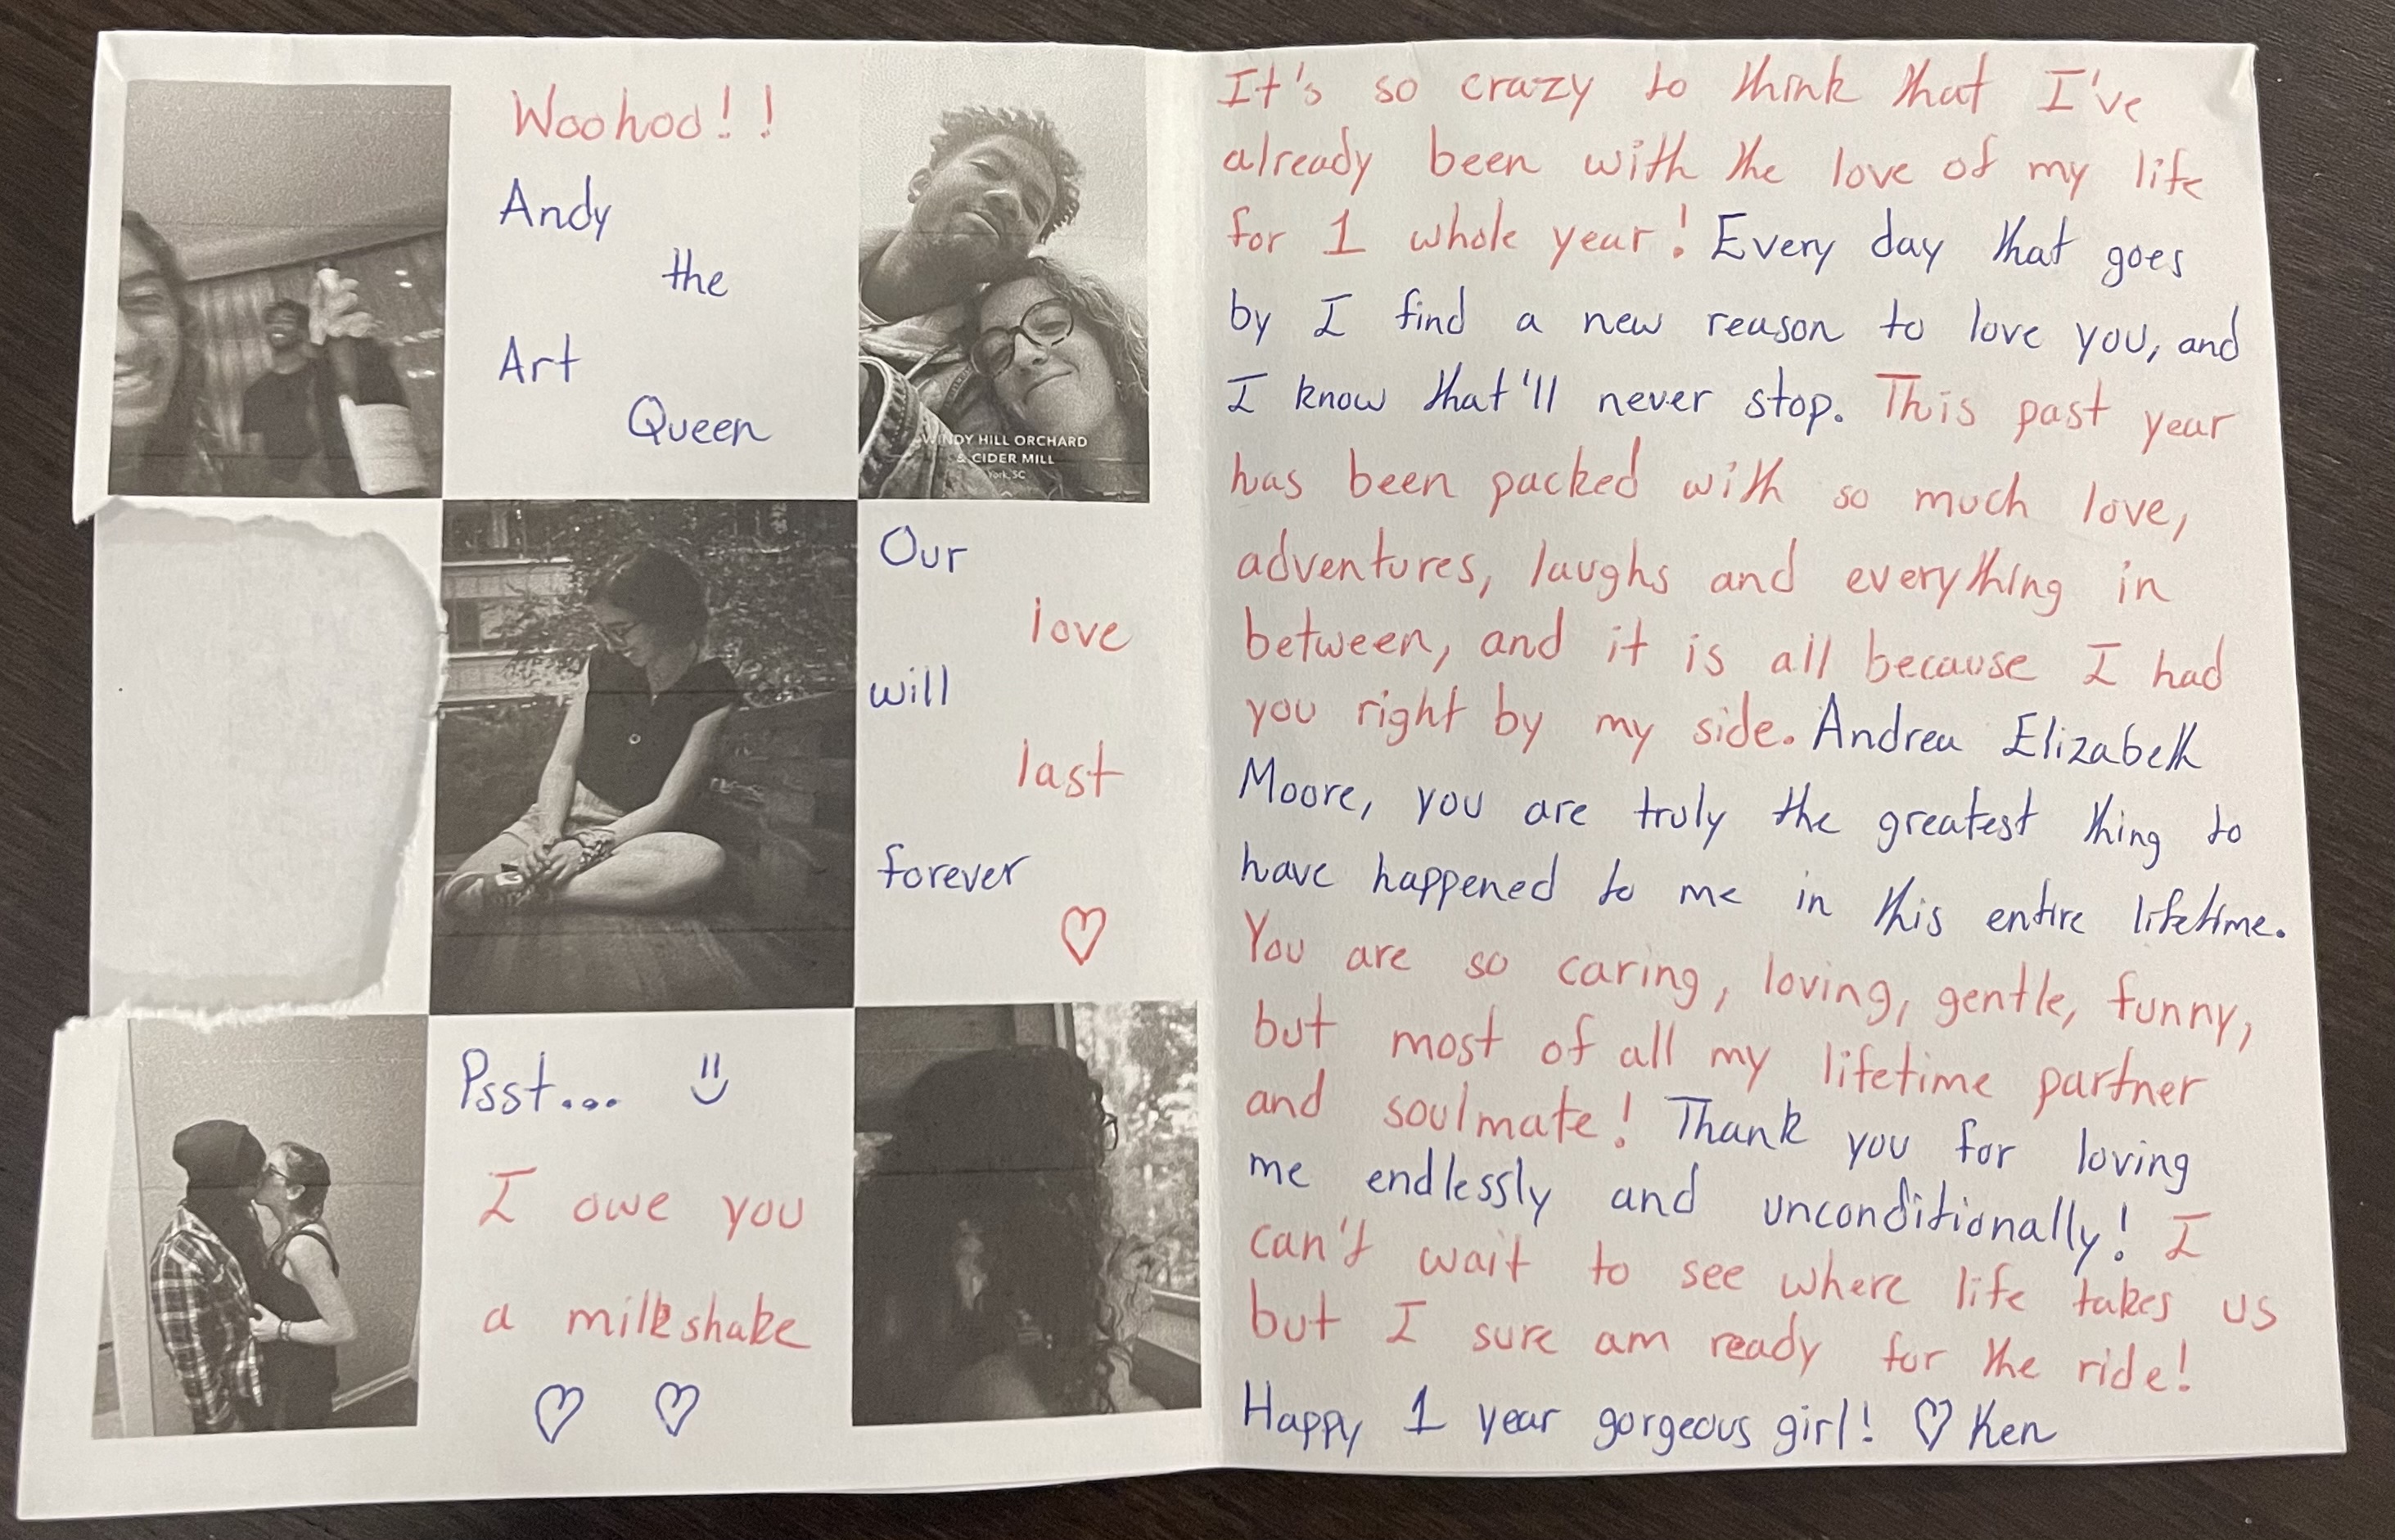 Woohoo!!
Andy
the
Art
Queen
WINDY HILL ORCHARD
& CIDER MILL
York, SC
Our
love
will
last
forever
Psst...
I owe you
a milkshake
It's so crazy to think that I've
already been with the love of my life
for 1 whole year! Every day that goes
by I find a new reason to love you, and
I know that'll never stop. This past year
has been packed with so much love,
adventures, laughs and everything in
between, and it is all because I had
you right by my side. Andrea Elizabeth
Moore, you are truly the greatest thing to
have happened to me in this entire lifetime.
You are so caring, loving, gentle, funny,
but most of all my lifetime partner
and soulmate! Thank you for loving
me endlessly and unconditionally! I
can't wait to see where life takes us
but I sure am ready for the ride!
Happy 1 year gorgeous girl! ♡ Ken